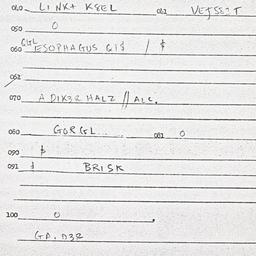 040 LINK+ KSEL 041 VEJSEIT
050 0
060 ESOPHAGUS GIS / $
062
070 ADIK3R HALZ // ALC.
080 GORGL.. 081 0
090 $
091 $ BRISK
100 0
GA. D3R